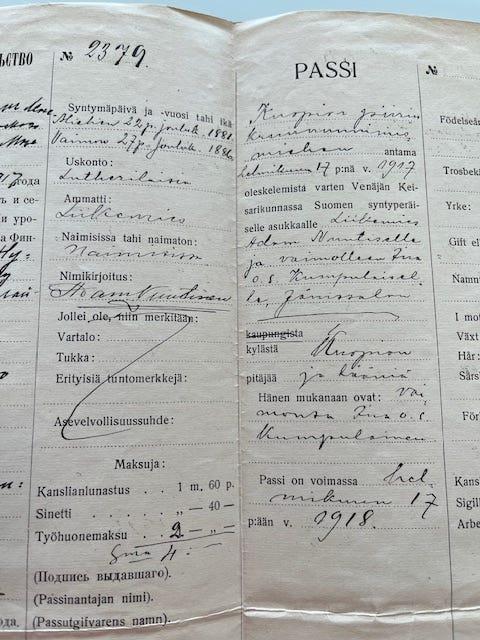 ЬСТВО
№ 2379.
Syntymäpäivä ja -vuosi tahi ikä
Miehen 22 p. jouluk. 1881.
Vaimon 27 p. jouluk. 1886.
Uskonto:
Lutherilaisia
Ammatti:
Liikemies
Naimisissa tahi naimaton:
Naimisissa
Nimikirjoitus:
Adam Nuutinen
Jollei ole, niin merkitään:
Vartalo:
Tukka:
Erityisiä tuntomerkkejä:
Asevelvollisuussuhde:
Maksuja:
Kanslianlunastus . . 1 m. 60 p.
Sinetti . . . . . „ — 40 —
Työhuonemaksu . . 2 — „ —
Sma 4:
(Подпись выдавшаго).
(Passinantajan nimi).
(Passutgifvarens namn).
17 года
и се-
и уро-
а Фин-
ода.
PASSI
Kuopion piirin
kruununnimis-
miehen antama
helmikuun 17 p:nä v. 1917
oleskelemista varten Venäjän Kei-
sarikunnassa Suomen syntyperäi-
selle asukkaalle Liikemies
Adam Nuutiselle
ja vaimolleen Iina
o. s. Kumpulaisel-
le, Jänissalon
kaupungista
kylästä Kuopion
pitäjää ja lääniä
Hänen mukanaan ovat: vai-
monsa Iina o. s.
Kumpulainen
Passi on voimassa hel-
mikuun 17
p:ään v. 1918.
№
Födelseår
Trosbek
Yrke:
Gift el
Namn
I mot
Växt
Hår:
Särsk
För
Kans
Sigill
Arbe